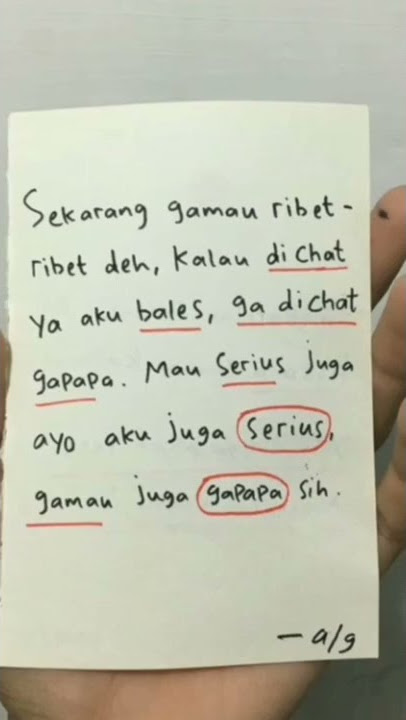 Sekarang gamau ribet-
ribet deh, kalau di chat
ya aku bales, ga di chat
gapapa. Mau serius juga
ayo aku juga serius,
gamau juga gapapa sih.
- a/g